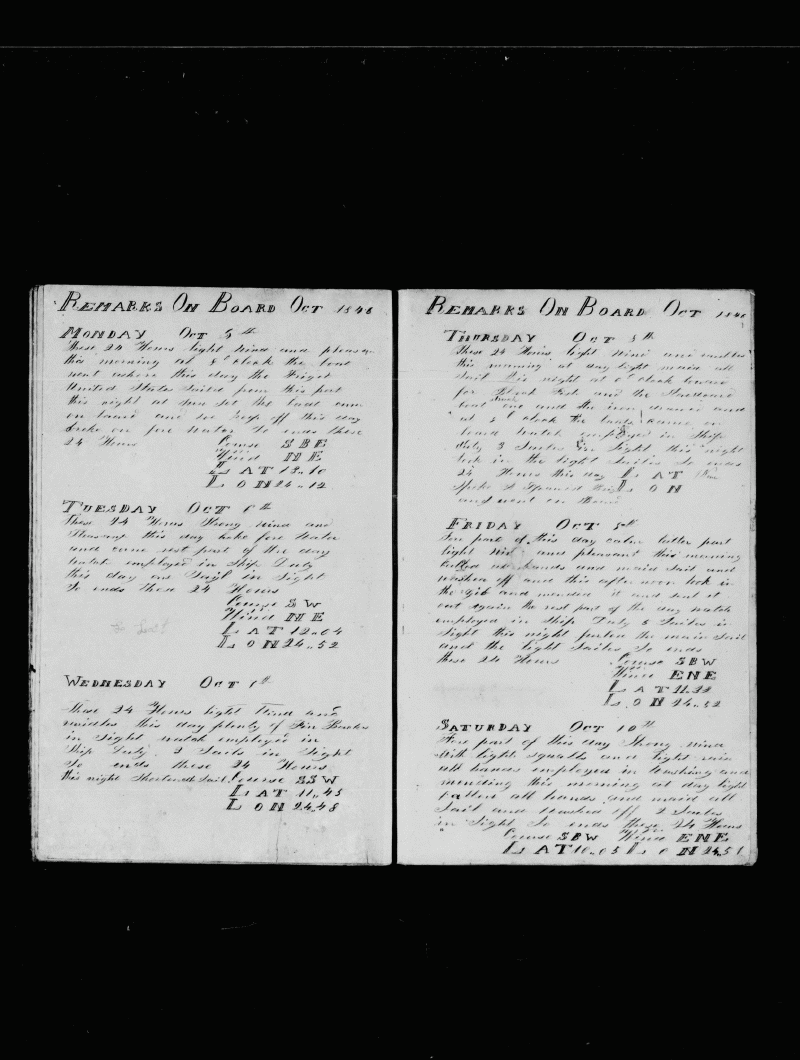 REMARKS ON BOARD OCT 1846
MONDAY OCT 5th
These 24 Hours light Wind and pleasant
this morning at 8 oclock the boat
went where this day the Friget
United States Sailed from this port
this night at sun set the boat cum
on board and we keep off this day
broke on fore these
24 Hours Course SBE
Wind NE
LAT 13..10
LON 24..12
TUESDAY OCT 6th
These 24 Hours Strong wind and
Pleasant this day broke fore
and rest part of the day
watch employed in Ship Duty
this day one Sail in Sight
So ends these 24 Hours
Course SW
Wind NE
LAT 12..04
LON 24..52
WEDNESDAY OCT
These 24 Hours light Wind and
this day plenty of Fin Backs
in Sight watch employed in
Ship Duty 2 Sails in Sight
So ends these 24 Hours
this night Shortend Sail Course SSW
LAT 11..45
LON 24.48
REMARKS ON BOARD OCT 1846
THURSDAY OCT
These 24 Hours light Wind and
this morning at day light maid all
Sail this night at oclock lowerd
for Black Fish and the Starboard
boat one and the iron and
at oclock the boats came on
board watch employed in Ship
duty 3 Sailes in Sight this night
took in the light Sailes So ends
24 Hours this day LAT
Spoke a LON
and went on
FRIDAY OCT
Fore part of this day calm latter part
light Wind and pleasant this morning
called all hands and maid Sail and
washed off and this after noon took in
the Gib and mended it and sent it
out again the rest part of the day watch
employed in Ship Duty 5 Sailes in
Sight this night furled the main Sail
and the light Sailes So ends
these 24 Hours Course SBW
Wind ENE
LAT 11.22
LON 24..52
SATURDAY OCT 10th
Fore part of this day Strong wind
with light squalls and light rain
all hands employed in washing and
mending this morning at day light
called all hands and maid all
Sail and washed off 2 Sailes
in Sight So ends these 24 Hours
Course SBW Wind ENE
LAT 10..05 LON 24..51